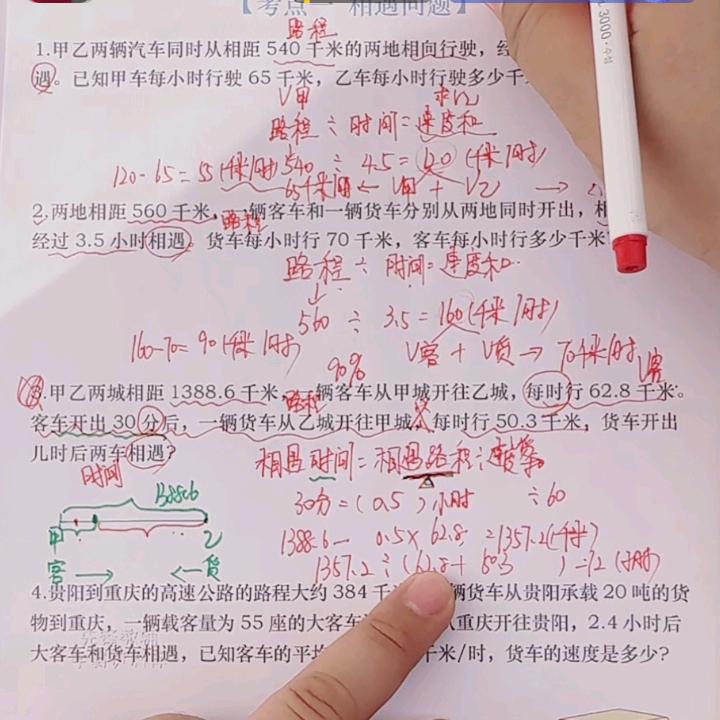 【考点一 相遇问题】
路程
1.甲乙两辆汽车同时从相距 540 千米的两地相向行驶，经
遇。已知甲车每小时行驶 65 千米，乙车每小时行驶多少千
V甲 求V乙
路程 ÷ 时间 = 速度和
540 ÷ 4.5 = 120 (千米/时)
120-65=55(千米/时)
65千米/时 ← V甲 + V乙 →
2.两地相距 560 千米，一辆客车和一辆货车分别从两地同时开出，相
路程
经过 3.5 小时相遇。货车每小时行 70 千米，客车每小时行多少千米
路程 ÷ 时间=速度和
560 ÷ 3.5=160(千米/时)
160-70=90(千米/时) V客 + V货 → 70千米/时
90% V客
3.甲乙两城相距 1388.6 千米，一辆客车从甲城开往乙城，每时行 62.8 千米。
路程
客车开出 30 分后，一辆货车从乙城开往甲城，每时行 50.3 千米，货车开出
几时后两车相遇？ 相遇时间=相遇路程÷速度和
时间
30分=(0.5)小时 ÷60
1388.6
甲 乙
客 → ← 货
1388.6- 0.5×62.8 =1357.2(千米)
1357.2÷(62.8+50.3)=12(小时)
4.贵阳到重庆的高速公路的路程大约 384 千 辆货车从贵阳承载 20 吨的货
物到重庆，一辆载客量为 55 座的大客车 从重庆开往贵阳，2.4 小时后
大客车和货车相遇，已知客车的平均 千米/时，货车的速度是多少？
3000